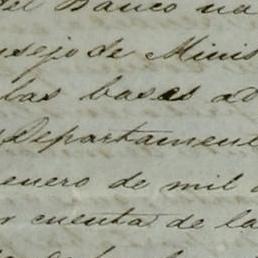 del Banco na
nsejo de Minis
las bases ad
Departament
enero de mil
r cuenta de la